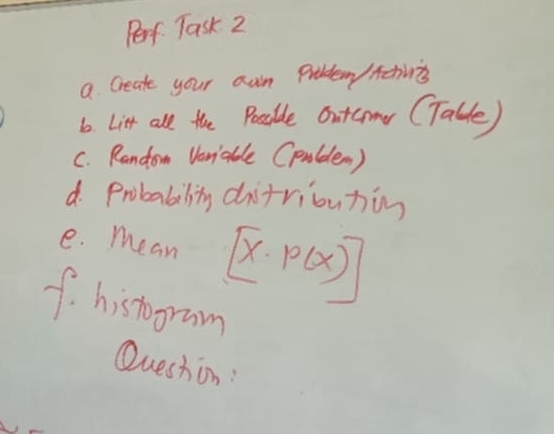 Perf. Task 2
a. Create your own Problem/Activity
b. List all the Possible Outcomes (Table)
c. Random Variable (problem)
d. Probability distribution
e. Mean [X · P(X)]
f. histogram
Question: